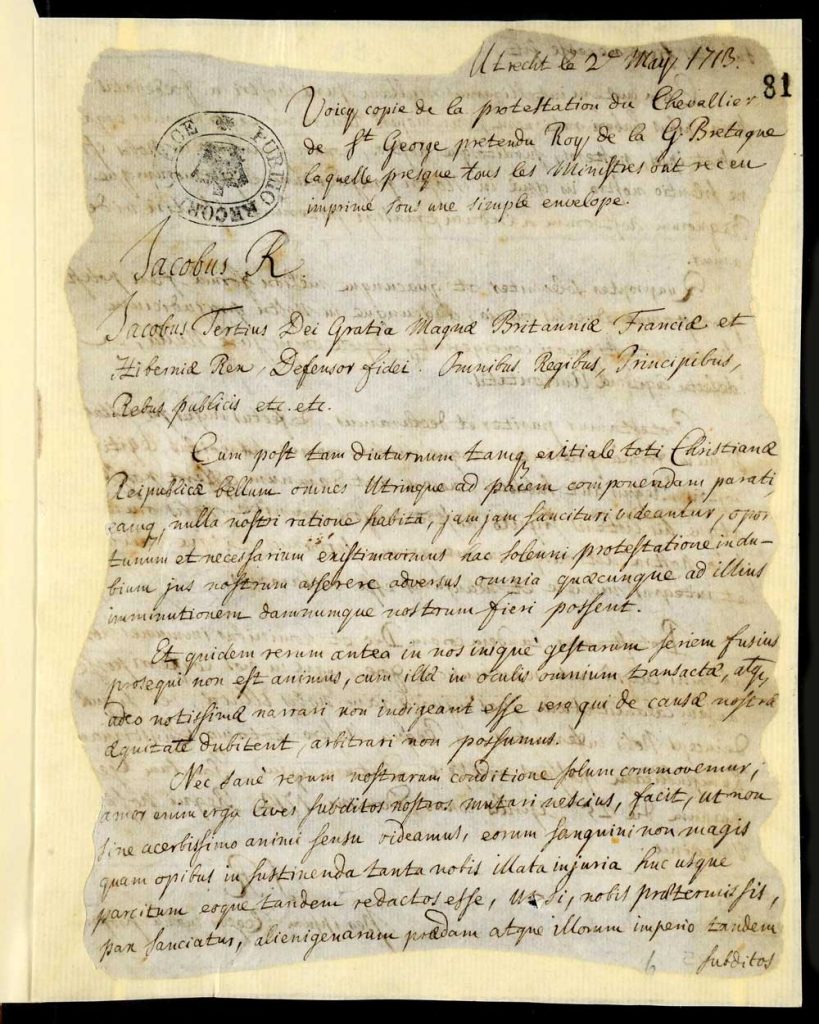 Utrecht le 2e May 1713.
81
Voicy copie de la protestation du Chevallier
de St George pretendu Roy de la G: Bretaque
laquelle presque tous les Ministres ont receu
imprimé sous une simple envelope.
PUBLIC RECORD OFFICE
Jacobus R
Jacobus Tertius Dei Gratia Magnæ Britanniæ Franciæ et
Hiberniæ Rex, Defensor fidei. Omnibus Regibus, Principibus,
Rebus publicis etc. etc.
Cum post tam diuturnum tamq exitiale toti Christianæ
Reipublicæ bellum omnes utrinque ad pacem componendam parati,
eamq, nulla nostri ratione habita, jamjam sancituri videantur, opor
tunum et necessarium existimavimus hac solenni protestatione indu-
bium jus nostrum asserere adversus omnia quæcunque ad illius
imminutionem damnumque nostrum fieri possent.
Et quidem rerum antea in nos iniquè gestarum seriem fusius
prosequi non est animus, cum illæ in oculis omnium transactæ, atq,
adeo notissimæ narrari non indigeant esse vero qui de causæ nostræ
æquitate dubitent, arbitrari non possumus.
Nec sanè rerum nostrarum conditione solum commovemur,
amor enim erga Cives subditos nostros mutari nescius, facit, ut non
sine acerbissimo animi sensu videamus, eorum sanguini non magis
quam opibus in sustinenda tanta nobis illata injuria huc usque
parcitum eoque tandem redactos esse, ut si, nobis prætermissis,
pax sanciatur, alienigenarum prædam atque illorum imperio tandem
subditos